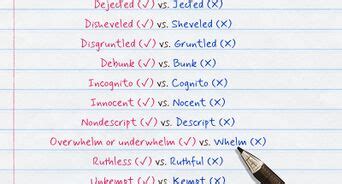 Dejected (✓) vs. Jected (X)
Disheveled (✓) vs. Sheveled (X)
Disgruntled (✓) vs. Gruntled (X)
Debunk (✓) vs. Bunk (X)
Incognito (✓) vs. Cognito (X)
Innocent (✓) vs. Nocent (X)
Nondescript (✓) vs. Descript (X)
Overwhelm or underwhelm (✓) vs. Whelm (X)
Ruthless (✓) vs. Ruthful (X)
Unkempt (✓) vs. Kempt (X)